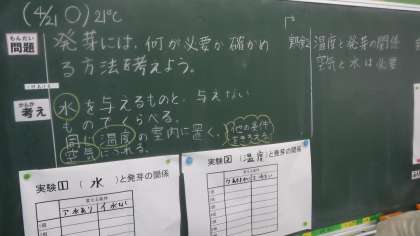 (4/21 〇) 21℃
もんだい
問題
発芽には、何が必要か確かめ
る方法を考えよう。
かんが
考え
水を与えるものと、与えない
ものでくらべる。
同じ温度の室内に置く。
空気にふれる。
他の条件
温度と発芽の関係
空気と水は必要
実験① ( 水 ) と発芽の関係
変える条件
ア 水あり
イ 水なし
実験② ( 温度 ) と発芽の関係
変える条件